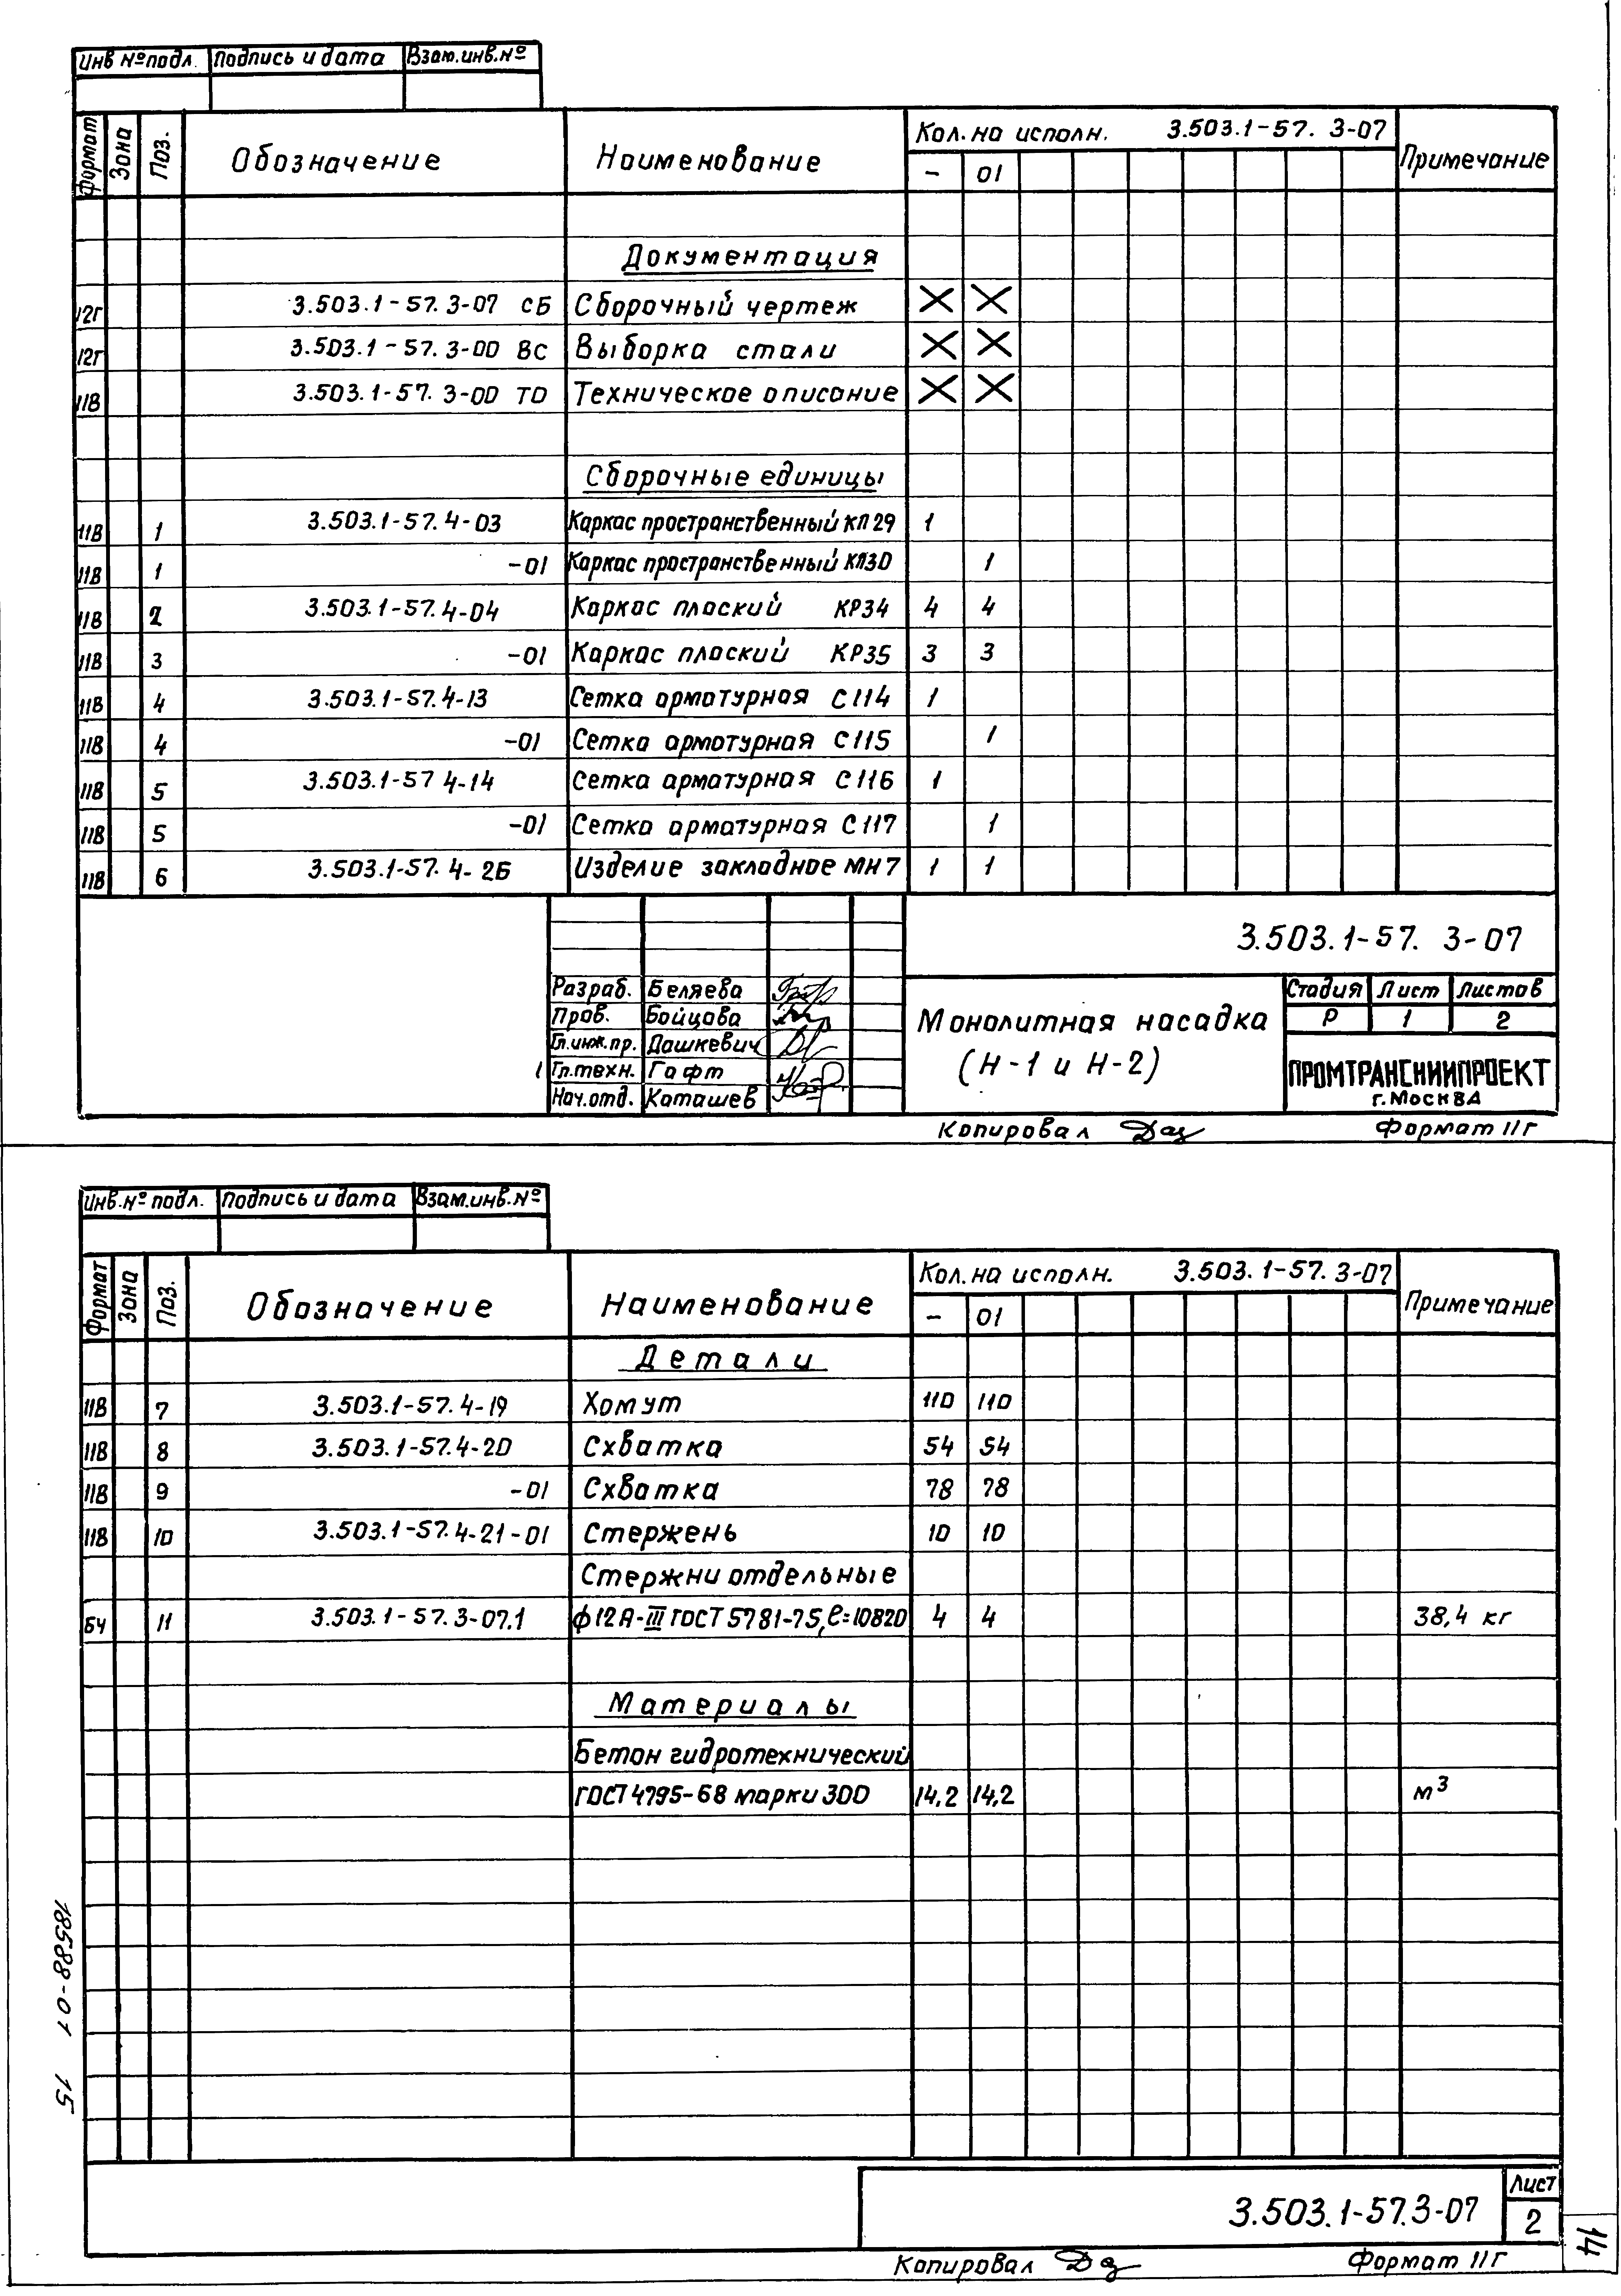 Инв № подл. Подпись и дата Взам.инв.№
Формат Зона Поз. Обозначение Наименование Кол. на исполн. 3.503.1-57. 3-07 Примечание
- 01
Документация
12Г 3.503.1-57. 3-07 СБ Сборочный чертеж X X
12Г 3.503.1-57. 3-00 ВС Выборка стали X X
11В 3.503.1-57. 3-00 ТО Техническое описание X X
Сборочные единицы
11В 1 3.503.1-57. 4-03 Каркас пространственный КП29 1
11В 1 -01 Каркас пространственный КП30 1
11В 2 3.503.1-57. 4-04 Каркас плоский КР34 4 4
11В 3 -01 Каркас плоский КР35 3 3
11В 4 3.503.1-57. 4-13 Сетка арматурная С114 1
11В 4 -01 Сетка арматурная С115 1
11В 5 3.503.1-57 4-14 Сетка арматурная С116 1
11В 5 -01 Сетка арматурная С117 1
11В 6 3.503.1-57. 4-26 Изделие закладное МН7 1 1
3.503.1-57. 3-07
Разраб. Беляева
Пров. Бойцова
Гл.инж.пр. Дашкевич
Гл.техн. Гафт
Нач.отд. Каташев
Монолитная насадка
(Н-1 и Н-2)
Стадия Лист Листов
Р 1 2
ПРОМТРАНСНИИПРОЕКТ
г. МОСКВА
Копировал Формат 11Г
Инв.№ подл. Подпись и дата Взам.инв.№
Формат Зона Поз. Обозначение Наименование Кол. на исполн. 3.503.1-57. 3-07 Примечание
- 01
Детали
11В 7 3.503.1-57. 4-19 Хомут 110 110
11В 8 3.503.1-57. 4-20 Схватка 54 54
11В 9 -01 Схватка 78 78
11В 10 3.503.1-57. 4-21-01 Стержень 10 10
Стержни отдельные
БЧ 11 3.503.1-57. 3-07.1 ф12А-III ГОСТ 5781-75, ℓ=10820 4 4 38,4 кг
Материалы
Бетон гидротехнический
ГОСТ 4795-68 марки 300 14,2 14,2 м³
18588-01 15
3.503.1-57.3-07
Лист
2
Копировал Формат 11Г
14